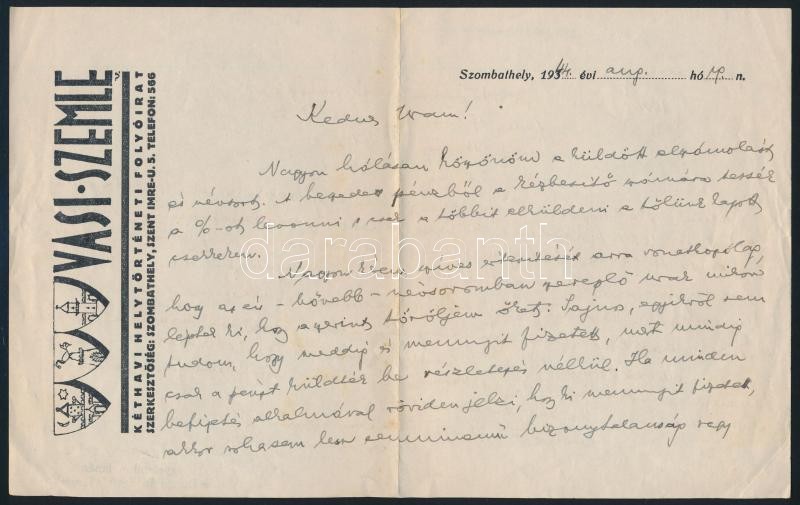 VASI·SZEMLE
KÉTHAVI HELYTÖRTÉNETI FOLYÓIRAT
SZERKESZTŐSÉG: SZOMBATHELY, SZENT IMRE-U. 5. TELEFON: 566
Szombathely, 193 évi aug. hó n.
Kedves Uram!
Nagyon hálásan köszönöm a küldött elszámolást
és névsort. A beszedett pénzből a kézbesítő számára tessék
a %-ot levonni s csak a többit elküldeni a tőlünk kapott
csekken.
Nagyon kérem szíves értesítését arra vonatkozólag,
hogy az én - bővebb - névsoromban szereplő urak mikor
léptek ki, hogy aszerint töröljem őket. Sajnos, egyikről sem
tudom, hogy meddig és mennyit fizetett, mert mindig
csak a pénzt küldték be részletezés nélkül. Ha minden
befizetés alkalmával röviden jelzi, hogy ki mennyit fizetett,
akkor sohasem lesz semminemű bizonytalanság vagy
darabanth